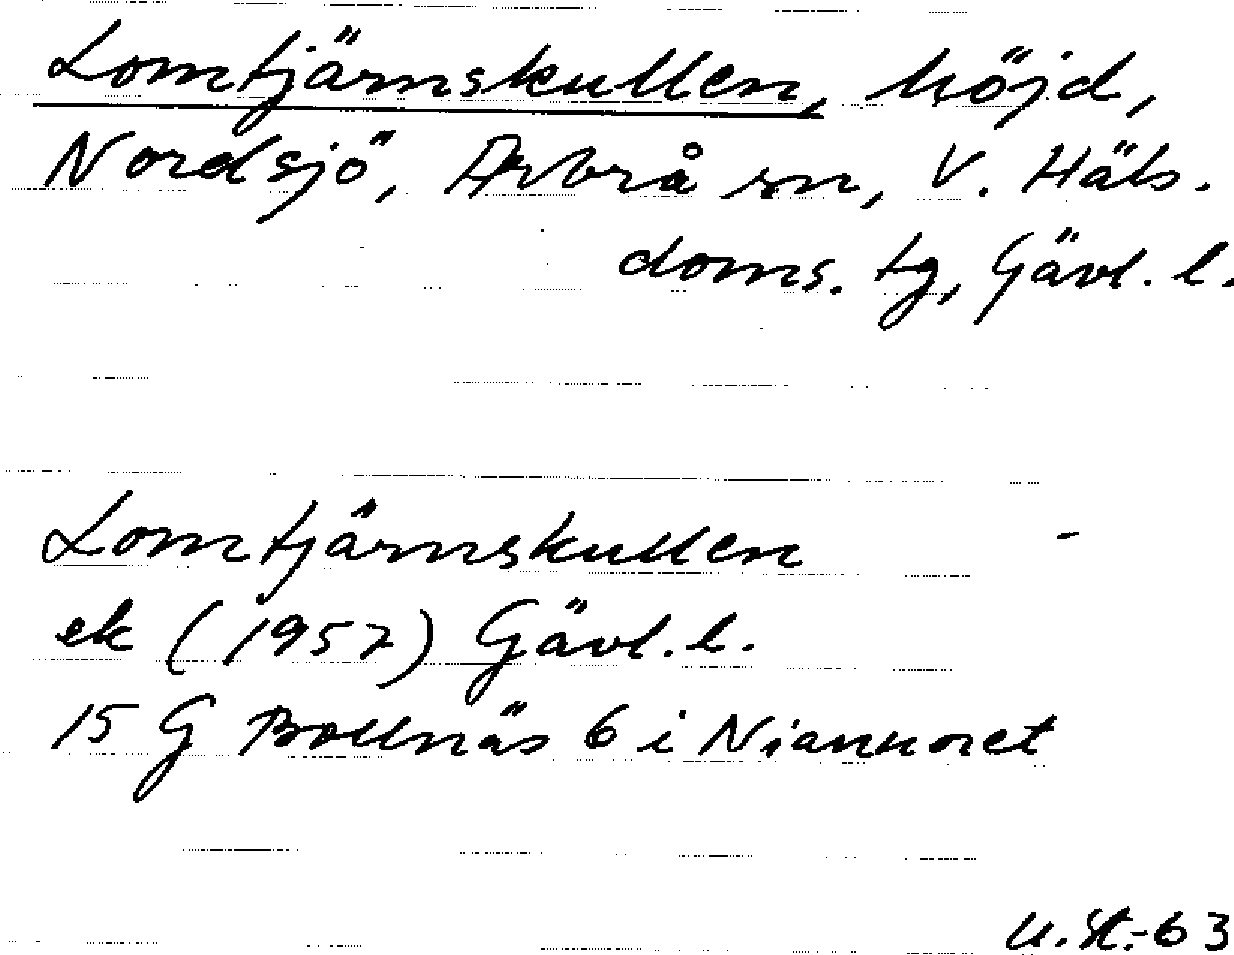 Lomtjärnskullen, höjd,
Nordsjö, Arbrå sn, V. Häls.
doms. tg, Gävl. l.
Lomtjärnskullen -
ek (1957) Gävl. l.
15 G Bollnäs 6 i Nianoret
U. St. -63